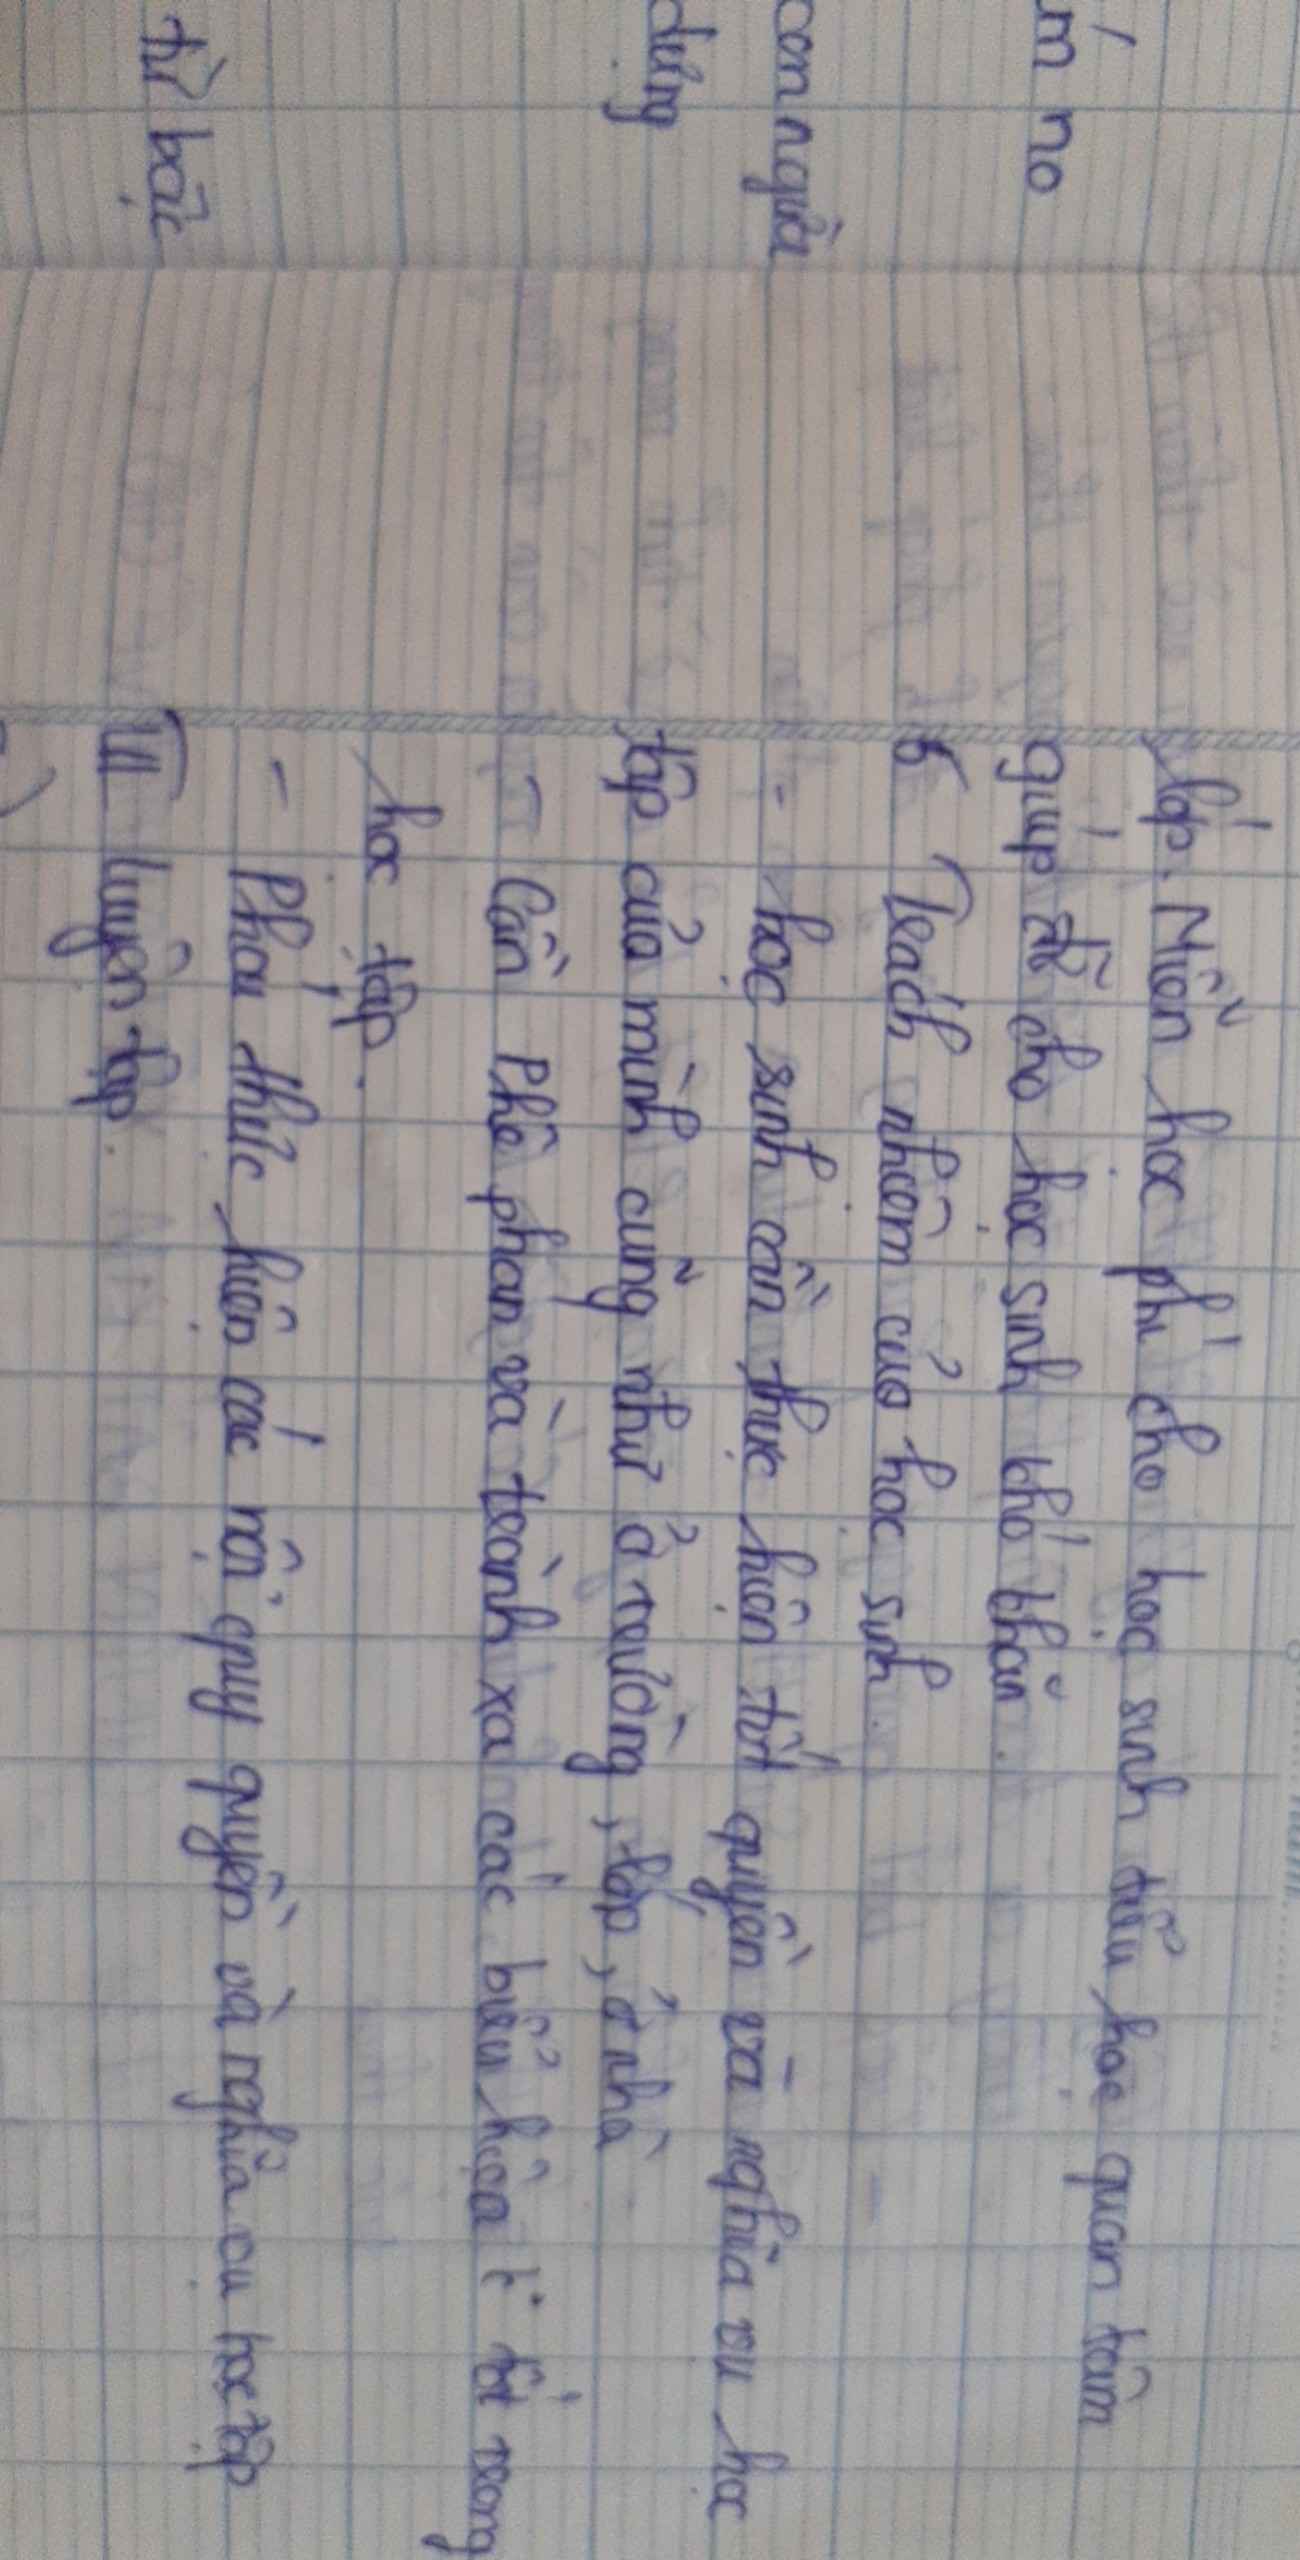 ấm no
con người
dựng
từ bậc
lớp. Miễn học phí cho học sinh tiểu học quan tâm
giúp đỡ cho học sinh khó khăn.
6 Trách nhiệm của học sinh
- học sinh cần thực hiện tốt quyền và nghĩa vụ học
tập của mình cũng như ở trường, lớp, ở nhà
- Cần Phê phán và tránh xa các biểu hiện tốt trong
học tập.
- Phải thực hiện các nội quy quyền và nghĩa vụ học tập
III luyện tập.